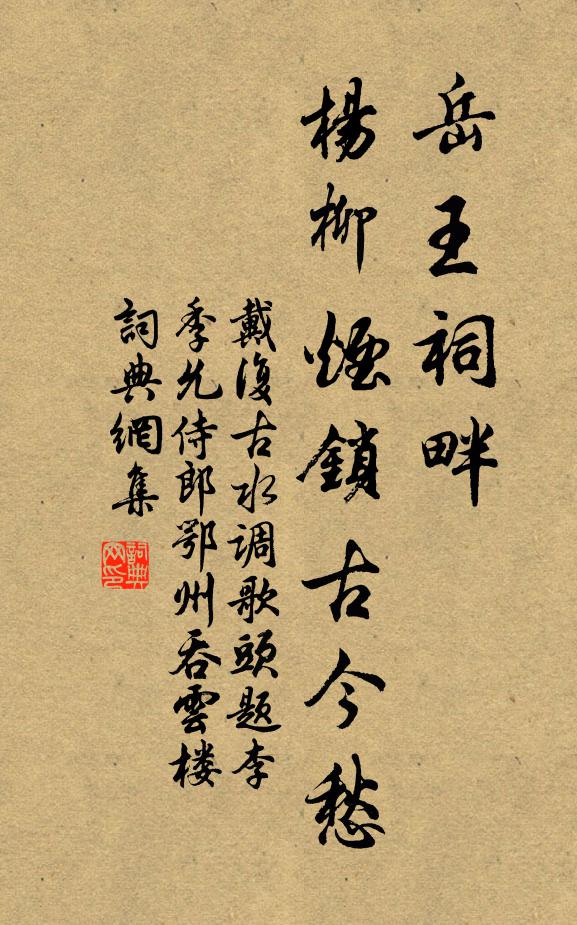 岳王祠畔
楊柳煙鎖古今愁
戴復古水调歌頭题李
季允侍郎鄂州吞雲楼
詞典網集
詞典网印